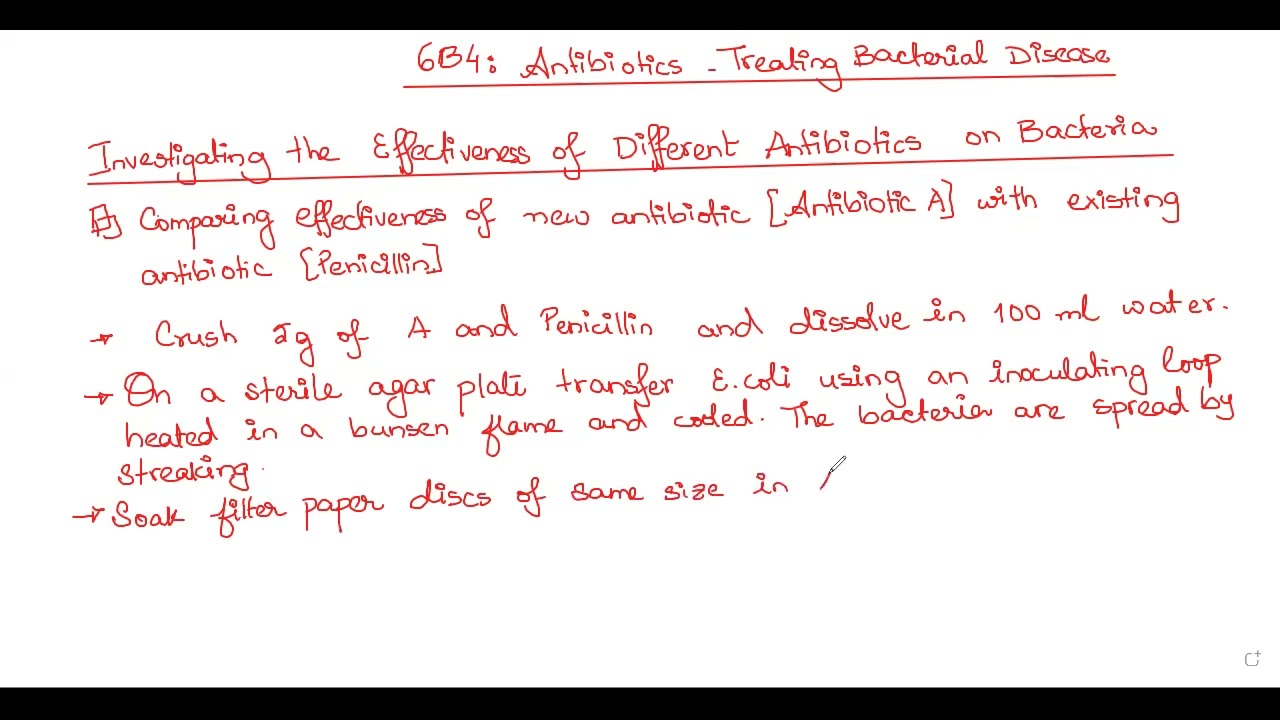 6B4: Antibiotics - Treating Bacterial Disease
Investigating the Effectiveness of Different Antibiotics on Bacteria
Comparing effectiveness of new antibiotic [Antibiotic A] with existing
antibiotic [Penicillin]
→ Crush 2g of A and Penicillin and dissolve in 100 ml water.
→ On a sterile agar plate transfer E.coli using an inoculating loop
heated in a bunsen flame and cooled. The bacteria are spread by
streaking.
→ Soak filter paper discs of same size in